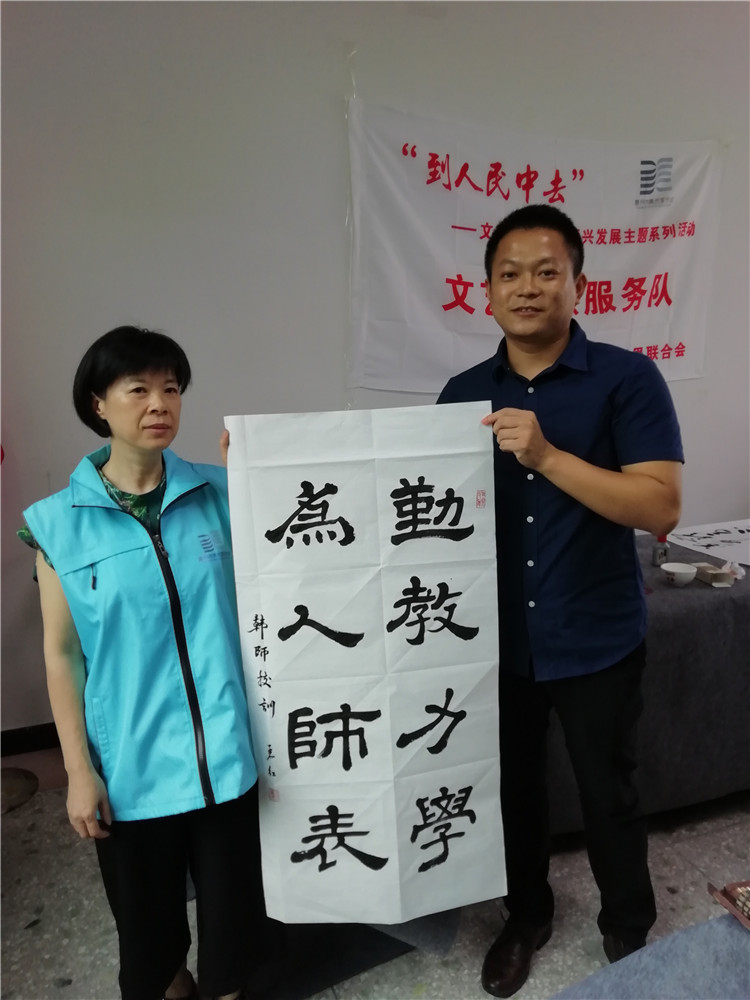 “到人民中去”
兴发展主题系列活动
文艺
服务队
联合会
勤教力學
為人師表
韩師校訓